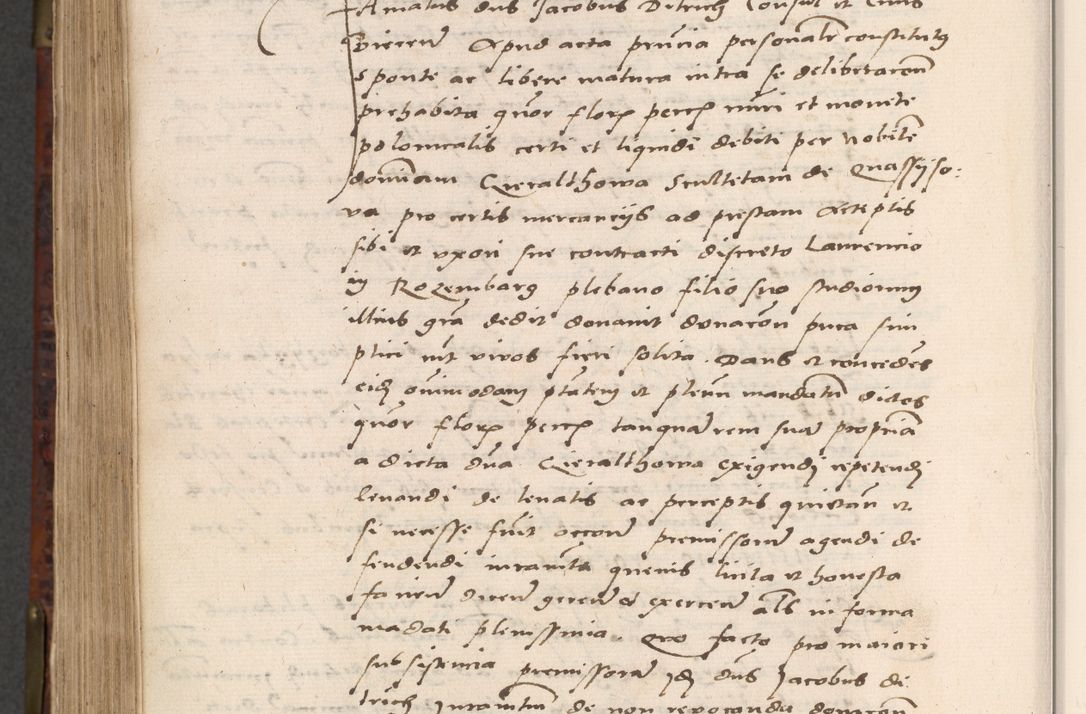 Amatus dns Jacobus Ditrich Consul et Civis
Biecen Apud acta pncia personalr constitutus
sponte ac libere matura intra se deliberacon
prehabita quor florp percep nuri et monete
polonicalis certi et liquidi debiti per nobilem
domicam Queralthowa Scultetam de Quassyso:
va pro certis mercancijs ad prestam Acceptis
sibi et vxori sue contracti discreto Laurencio
in Rozembarg plebano filio suo studiorum
illius gra dedit donauit donacon pura sim
plici int vivos fieri solita. Dans et concedes
eidz omnimodam ptatem et plenu mandatu dictos
quor florp percep tanqua rem sua propria
a dicta dna Queralthowa exigendj repetendj
levandi de levatis ac perceptis quietan et
si necesse fuit accon premissorum agendi de
fendendi iuramta quevis licita et honesta
facien dicen geren et exercen als in forma
madati plenissima. Quo facto pro maiori
subsistencia premissorum Idz dns Jacobus di
trich Juramtum de non revocanda donacon